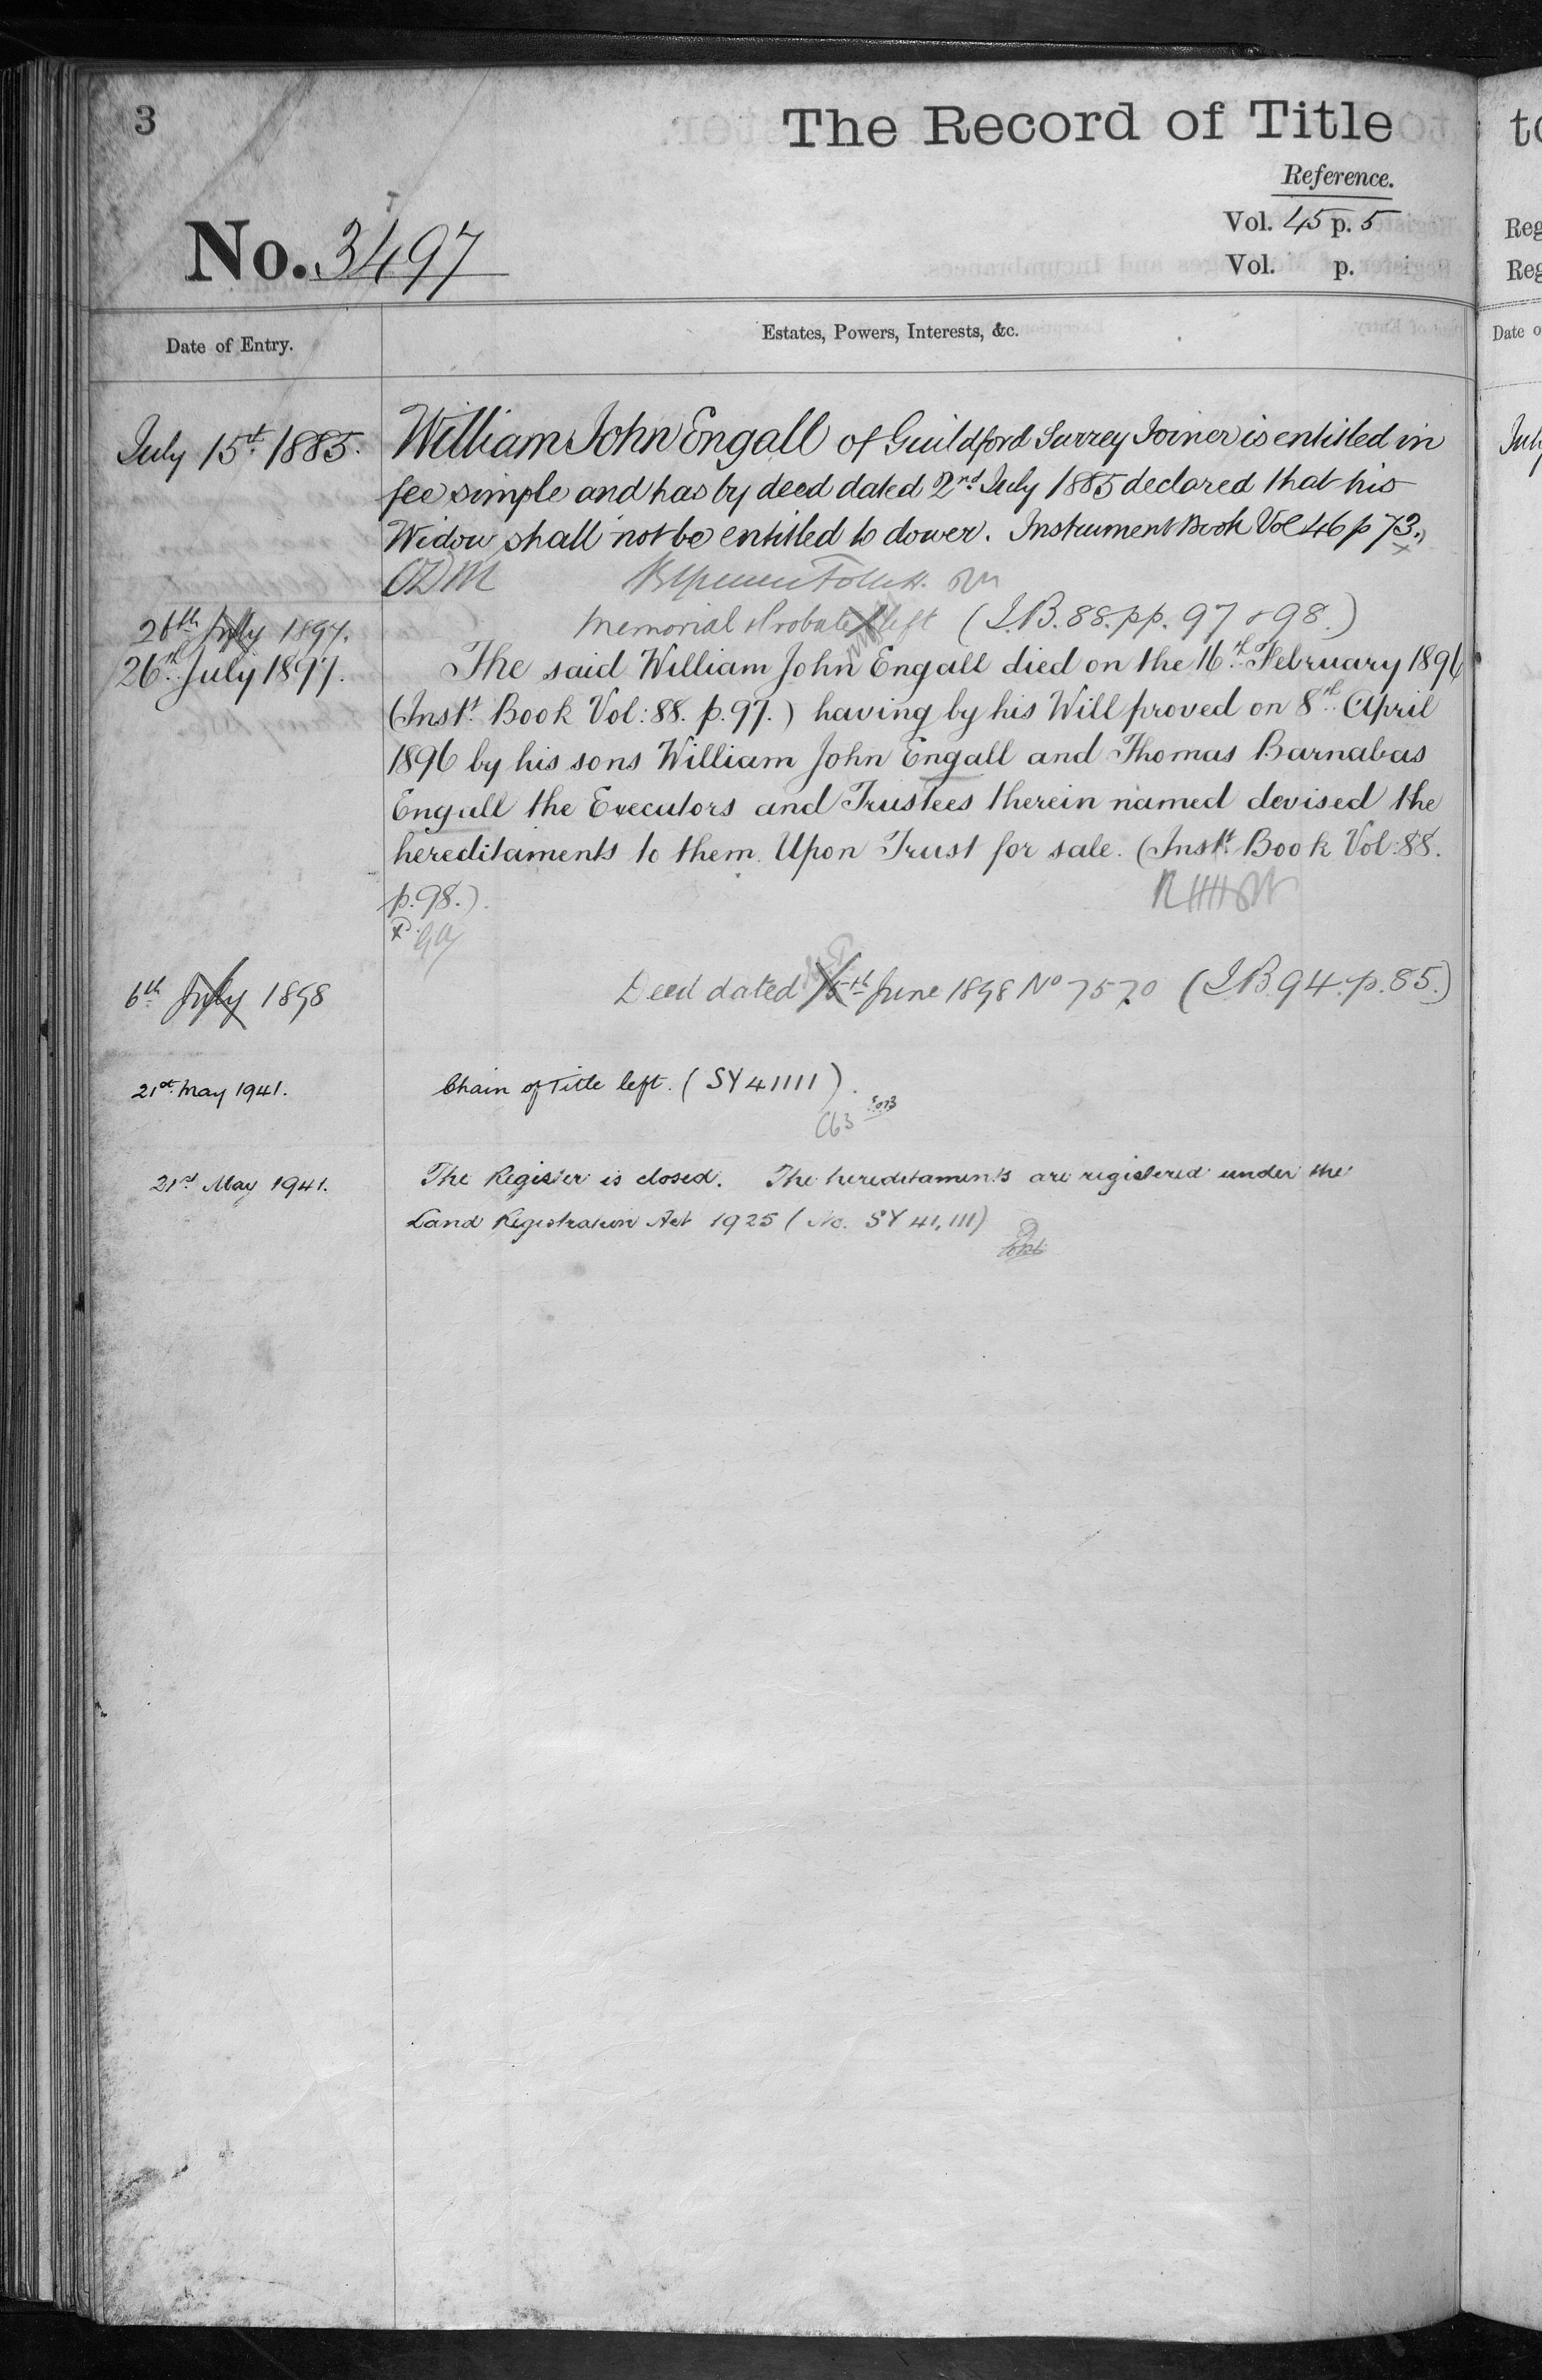 3
The Record of Title
Reference.
No. 3497
Vol. 45 p. 5
Vol. p.
Date of Entry.
Estates, Powers, Interests, &c.
July 15th 1885. William John Engall of Guildford Surrey Joiner is entitled in
fee simple and has by deed dated 2nd July 1885 declared that his
Widow shall not be entitled to dower. Instrument Book Vol 46 p 73.
26th July 1897. Memorial & Probate left (I.B. 88. pp. 97 & 98.)
26th July 1897. The said William John Engall died on the 16th February 1896
(Inst. Book Vol: 88. p. 97.) having by his Will proved on 8th April
1896 by his sons William John Engall and Thomas Barnabas
Engall the Executors and Trustees therein named devised the
hereditaments to them Upon Trust for sale. (Inst. Book Vol: 88.
p. 98.)
6th July 1898 Deed dated June 1898 No 7570 (I.B. 94. p. 85.)
21st May 1941. Chain of Title left. (SY 41111).
21st May 1941. The Register is closed. The hereditaments are registered under the
Land Registration Act 1925 (No. SY 41,111)
to
Reg
Reg
Date o
July